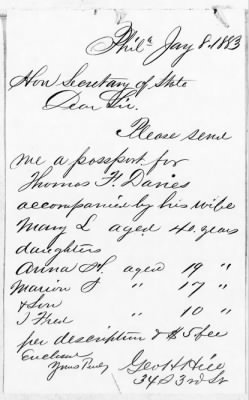 Phila Jay 8. 1883
Hon Secretary of State
Dear Sir.
Please send
me a passport for
Thomas F. Davies
accompanied by his wife
Mary L aged 40 years
daughters
Anna H. aged 19 "
Marion J " 17 "
& Son
J Fred " 10 "
per description & $5 fee
Enclosed
Yours Truly
Geo H Hice
34 S 3rd St